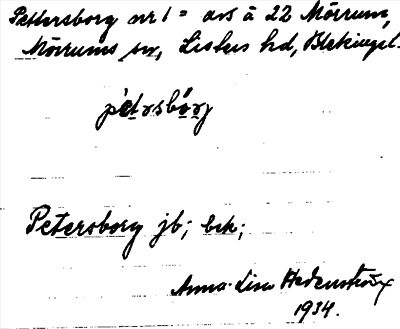 Pettersborg nr 1 = avs å 22 Mörrum,
Mörrums sn, Listers hd, Blekinge l.
pètrsbörg
Petersborg jb; brk;
Anna-Lisa Hedenström
1934.